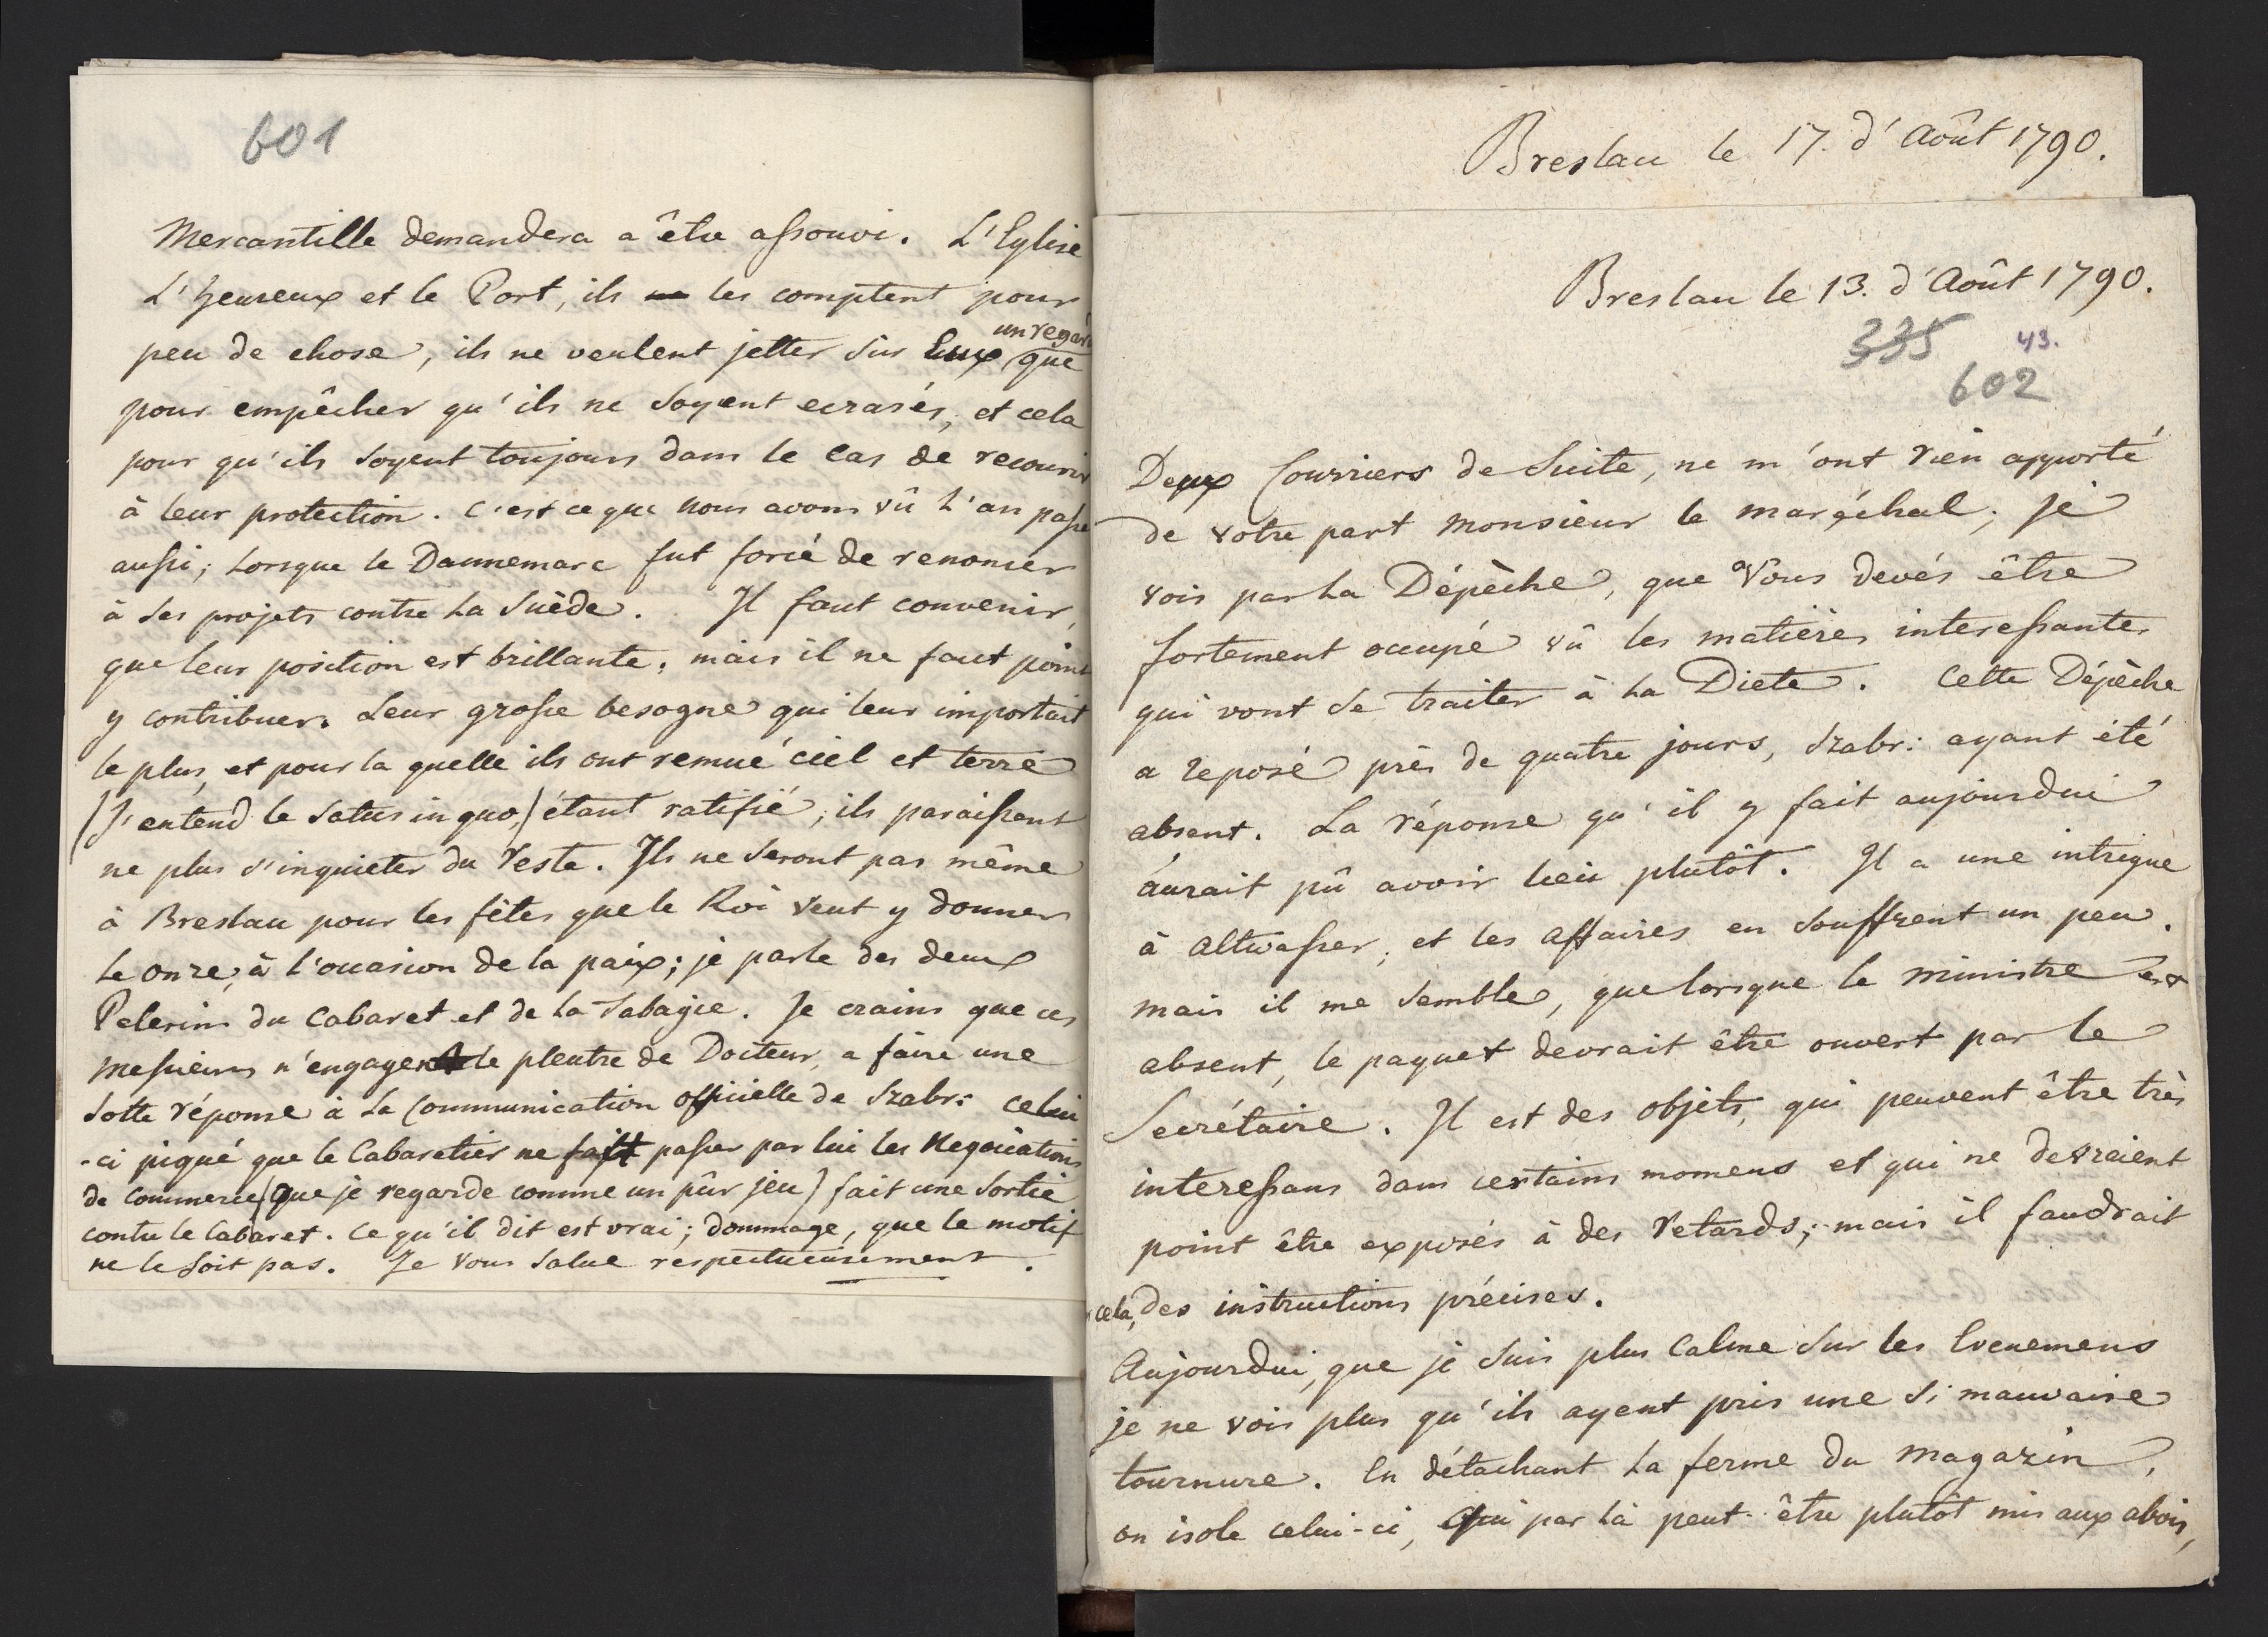 601
Mercantille demandera a être assouvi. L'Eglise
L'heureux et le Port, ils les comptent pour
un regard
peu de chose, ils ne veulent jetter sur Eux que
pour empêcher qu'ils ne soyent ecrasés, et cela
pour qu'ils soyent toujours dans le cas de recourir
à leur protection. C'est ce que nous avons vû l'an passé
aussi, lorsque le Dannemarc fut forcé de renoncer
à ses projets contre la Suède. Il faut convenir,
que leur position est brillante, mais il ne faut point
y contribuer. Leur grosse besogne qui leur importait
le plus, et pour la quelle ils ont remué ciel et terre
(J'entend le satus in quo,) étant ratifié, ils paraissent
ne plus s'inquieter du reste. Ils ne seront pas même
à Breslau pour les fêtes que le Roi veut y donner
le onze, à l'ouasion de la paix; je parle des deux
Pelerins du Cabaret et de la Tabagie. Je crains que ces
Messieurs n'engagent le pleutre de Docteur, a faire une
sotte réponse à la Communication officielle de Szabr: celui
-ci piqué que le Cabaretier ne fait passer par lui les Negociations
de Commerce (que je regarde comme un pûr jeu) fait une sortie
contre le Cabaret. Ce qu'il dit est vrai; dommage, que le motif
ne le soit pas. Je vous salue respectueusement.
Breslau le 17. d'Août 1790.
Breslau le 13. d'Août 1790.
335 43.
602
Deux Courriers de Suite, ne m'ont rien apporté
de votre part Monsieur le maréchal; je
vois par la Dépèche, que Vous devés être
fortement occupé vû les matières interessantes
qui vont se traiter à la Diete. Cette Dépèche
a reposé près de quatre jours, Szabr: ayant été
absent. La réponse qu'il y fait aujourdui
aurait pû avoir lieu plutôt. Il a une intrigue
à Altwasser, et les affaires en souffrent un peu.
mais il me semble, que lorsque le ministre est
absent, le paquet devrait être ouvert par le
Secrétaire. Il est des objets, qui peuvent être très
interessans dans certains momens et qui ne devraient
point être exposés à des retards; mais il faudrait
cela, des instructions précises.
Aujourdui, que je suis plus calme sur les Evenemens
je ne vois plus qu'ils ayent pris une si mauvaise
tournure. En détachant la ferme du magazin,
on isole celui-ci, qui par là peut-être plutôt mis aux abois,